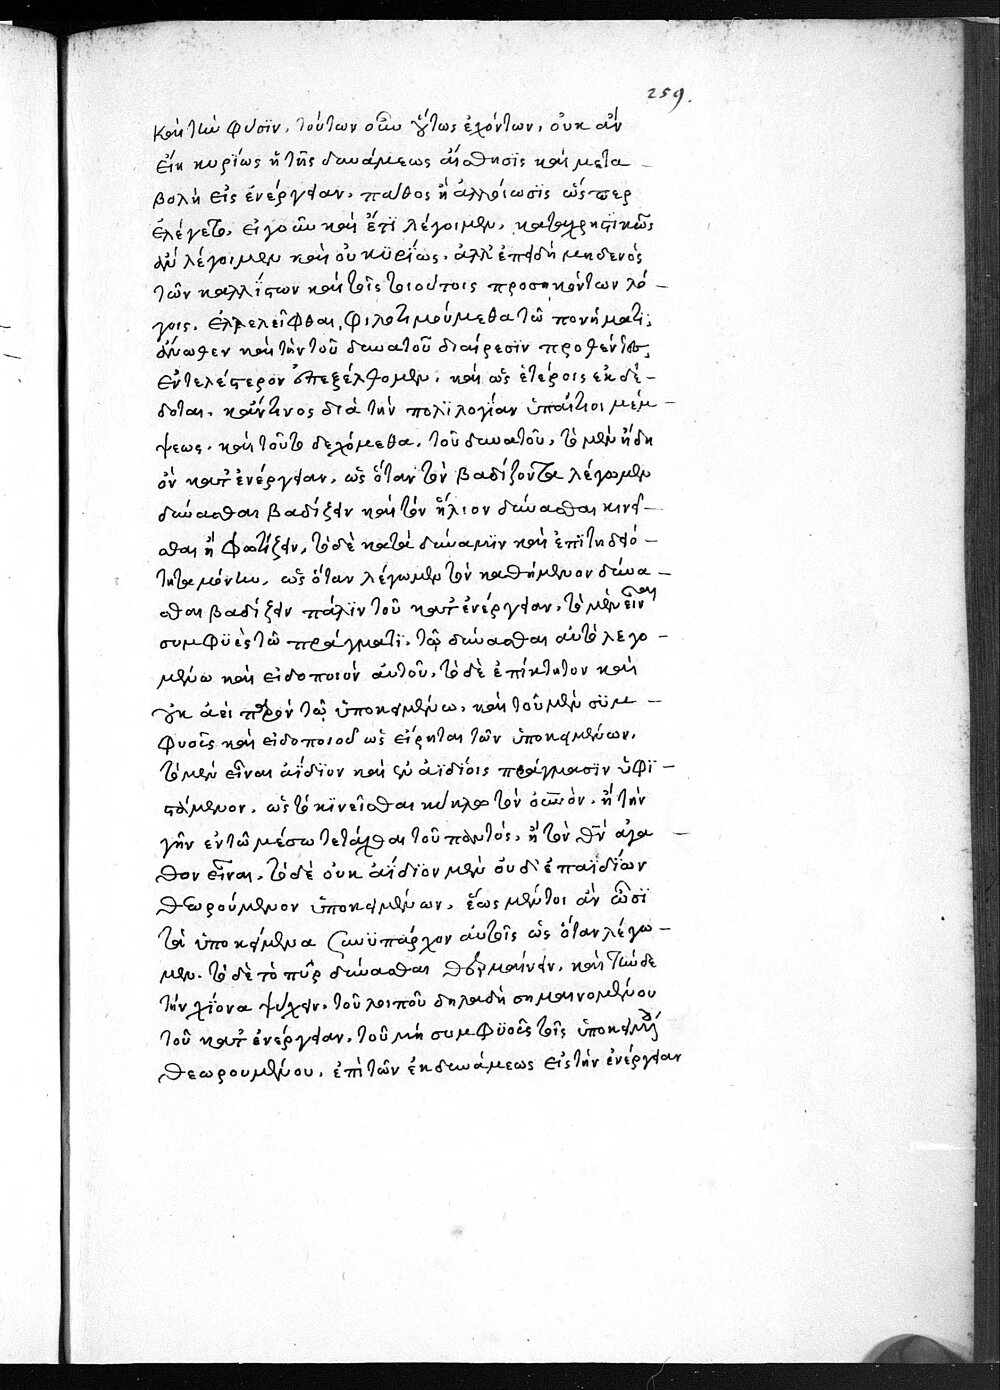 259.
καὶ τὴν φύσϊν. τούτων οὖν οὕτως ἐχόντων, οὐκ ἂν
εἴη κυρίως ἡ τῆς δυνάμεως αἴσθησϊς καὶ μετα
βολὴ εἰς ἐνέργειαν, πάθος ἢ ἀλλοίωσϊς ὥσπερ
ἐλέγετο, εἰ γοῦν καὶ ἔτϊ λέγοιμεν, καταχρηστϊκῶς
ἂν λέγοιμεν καὶ οὐ κϋρίως. ἀλλ' ἐπειδὴ μηδενὸς
τῶν καλλίστων καὶ τοῖς τοιούτοις προσηκόντων λό
γοις. ἐλλελεῖφθαι, φιλοτιμούμεθα τῶ πονήματι,
ἄνωθεν καὶ τὴν τοῦ δυνατοῦ διαίρεσϊν προθέντες,
ἐντελέστερον ἐπεξέλθομεν. καὶ ὡς ἑτέροις ἐκδέ
δοται. κἄν τινος διὰ τὴν πολϊλογίαν ὑπαίτιοι μέμ
ψεως. καὶ τοῦτο δεχόμεθα. τοῦ δυνατοῦ, τὸ μὲν ἤδη
ὂν κατ' ἐνέργειαν, ὡς ὅταν τὸν βαδίζοντα λέγωμεν
δύνασθαι βαδίζειν καὶ τὸν ἥλιον δύνασθαι κινεῖ
σθαι ἢ φωτίζειν, τὸ δὲ κατὰ δύναμϊν καὶ ἐπϊτηδειό
τητα μόνην. ὡς ὅταν λέγωμεν τὸν καθήμενον δύνα
σθαι βαδίζειν πάλϊν τοῦ κατ' ἐνέργειαν, τὸ μὲν εἶναι
συμφϋὲς τῶ πράγματϊ. τῶ δύνασθαι αὐτὸ λεγο
μένω καὶ εἰδοποιὸν αὐτοῦ, τὸ δὲ ἐπίκτητον καὶ
οὐκ ἀεὶ παρὸν τῶ ὑποκειμένω, καὶ τοῦ μὲν σϋμ
φυοῦς καὶ εἰδοποιοῦ ὡς εἴρηται τῶν ὑποκειμένων,
τὸ μὲν εἶναι ἀΐδϊον καὶ ἐν ἀϊδίοις πράγμασϊν ὑφϊ
στάμενον, ὡς τὸ κϊνεῖσθαι κύκλω τὸν οὐνὸν, ἢ τὴν
γῆν ἐν τῶ μέσω τετάχθαι τοῦ παντός, ἢ τὸν θν ἀγα
θὸν εἶναι. τὸ δὲ οὐκ ἀΐδϊον μὲν οὐδὲ ἐπ' ἀϊδίων
θεωρούμενον ὑποκειμένων, ἕως μέντοι ἂν ὦσϊ
τὰ ὑποκείμενα συνϋπάρχον αὐτοῖς ὡς ὅταν λέγω
μεν. τὸ δὲ τὸ πῦρ δύνασθαι θερμαίνειν, καὶ τὴν δε
τὴν χϊόνα ψύχειν, τοῦ λοιποῦ δηλαδὴ σημαινομένου
τοῦ κατ' ἐνέργειαν, τοῦ μὴ συμφϋοῦς τοῖς ὑποκειμένοις
θεωρουμένου. ἐπὶ τῶν ἐκ δυνάμεως εἰς τὴν ἐνέργειαν